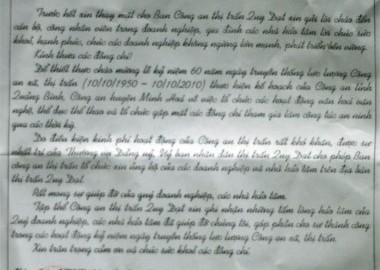 Trước hết xin thay mặt cho Ban Công an thị trấn Quy Đạt xin gửi lời chào đến
cán bộ, công nhân viên trong doanh nghiệp, gia đình các nhà hảo tâm lời chúc sức
khoẻ, hạnh phúc, chúc các doanh nghiệp không ngừng lớn mạnh, phát triển bền vững.
Kính thưa các đồng chí!
Để thiết thực chào mừng lễ kỷ niệm 60 năm ngày truyền thống lực lượng Công
an xã, thị trấn (10/10/1950 - 10/10/2010) thực hiện kế hoạch của Công an tỉnh
Quảng Bình, Công an huyện Minh Hoá về việc tổ chức các hoạt động văn hoá văn
nghệ, thể dục thể thao và tổ chức gặp mặt các đồng chí tham gia làm công tác an ninh
qua các thời kỳ.
Do điều kiện kinh phí hoạt động của Công an thị trấn rất khó khăn, được sự
nhất trí của Thường vụ Đảng uỷ, Uỷ ban nhân dân thị trấn Quy Đạt cho phép Ban
công an thị trấn tổ chức xin ủng hộ của các doanh nghiệp và nhà hảo tâm trên địa bàn
thị trấn Quy Đạt.
Rất mong sự giúp đỡ của quý doanh nghiệp, các nhà hảo tâm.
Tập thể Công an thị trấn Quy Đạt xin ghi nhận những tấm lòng hảo tâm của
Quý doanh nghiệp, các nhà hảo tâm đã giúp đỡ chúng tôi, góp phần cho sự thành công
trong các hoạt động kỷ niệm ngày truyền thống lực lượng Công an xã, thị trấn.
Xin trân trọng cảm ơn và chúc sức khoẻ các đồng chí!